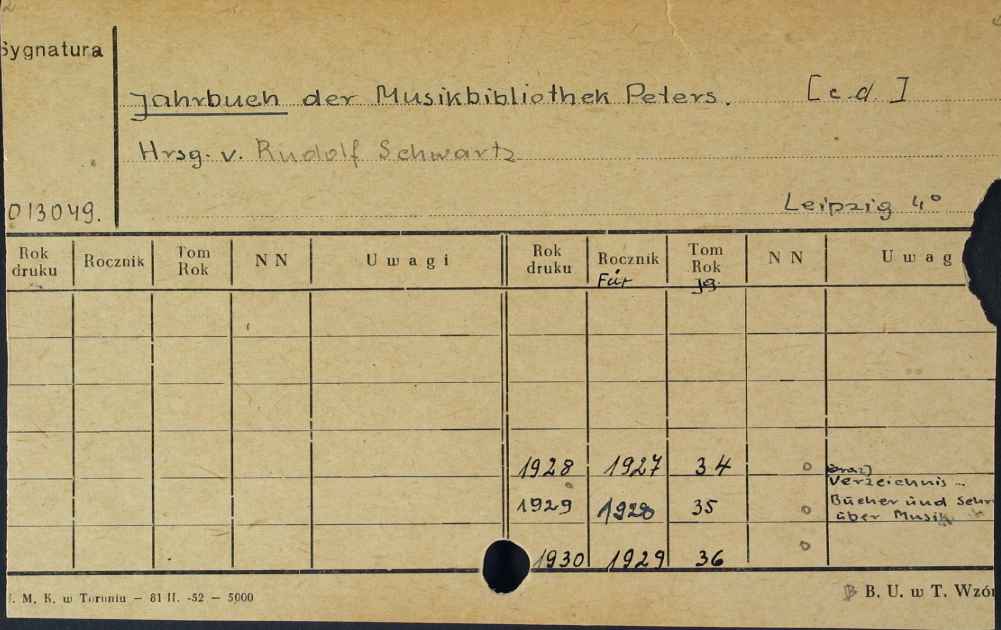 Sygnatura
Jahrbuch der Musikbibliothek Peters. [c.d.]
Hrsg. v. Rudolf Schwartz
013049.
Leipzig 4°
Rok druku Rocznik Tom Rok NN Uwagi Rok druku Rocznik Tom Rok NN Uwag
Für Jg.
1928 1927 34 (oraz)
Verzeichnis ..
1929 1928 35 Bücher und Schr
über Musik
1930 1929 36
. M. K. w Toruniu — 81 II. -52 — 5000
B. U. w T. Wzór